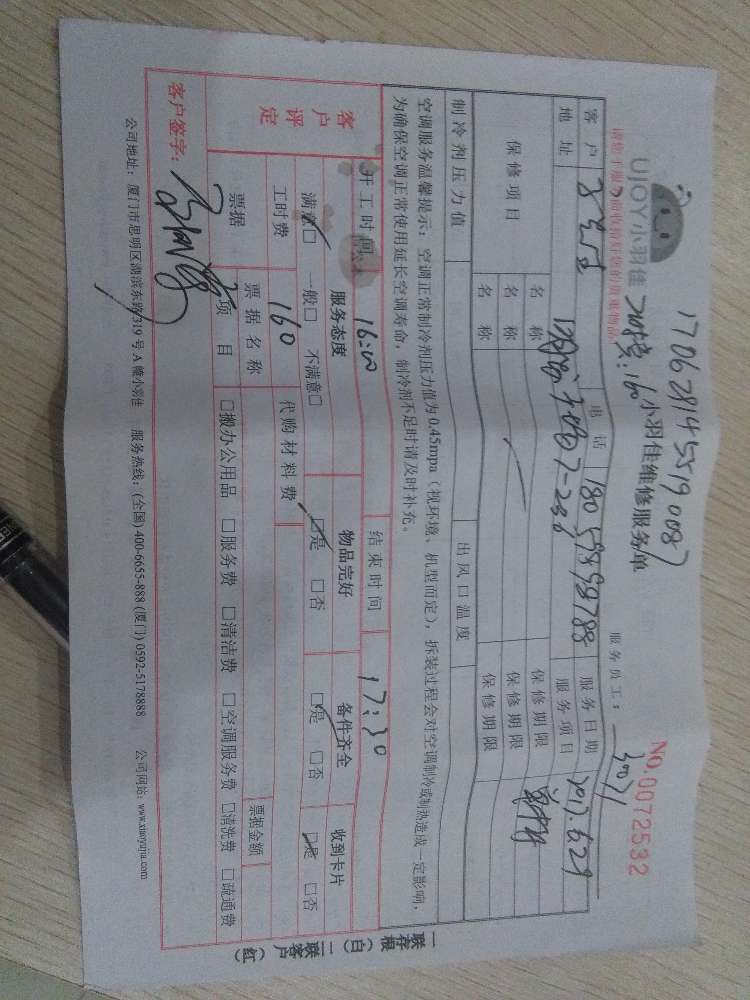 1706281455190087
UJOY小羽佳 工时费:160 小羽佳维修服务单 NO.0072532
服务员工:
客户 电话 服务日期 2017.6.29
地址 服务项目
保修项目 名称 保修期限
名称 保修期限
名称 保修期限
制冷剂压力值 出风口温度
空调服务温馨提示:空调正常制冷剂压力值为0.45mpa(视环境、机型而定),拆装过程会对空调制冷或制热造成一定影响,
为确保空调正常使用延长空调寿命,制冷剂不足时请及时补充。
开工时间 16:00 结束时间 17:30
客户评定 服务态度 物品完好 备件齐全 收到卡片
满意□ 一般□ 不满意□ □是 □否 □是 □否 □是 □否
工时费 160 代购材料费
票据 票据名称 票据金额
项目 □搬办公用品 □服务费 □清洁费 □空调服务费 □清洗费 □疏通费
客户签字:
公司地址:厦门市思明区湖滨东路319号A幢小羽佳 服务热线:(全国)400-6655-888 (厦门)0592-5178888 公司网站:www.xiaoyujia.com
一联存根(白) 二联客户(红)